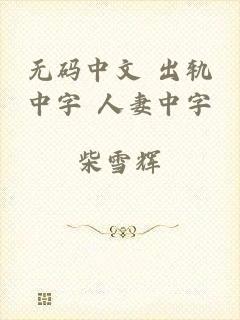 无码中文 出轨
中字 人妻中字
柴雪辉